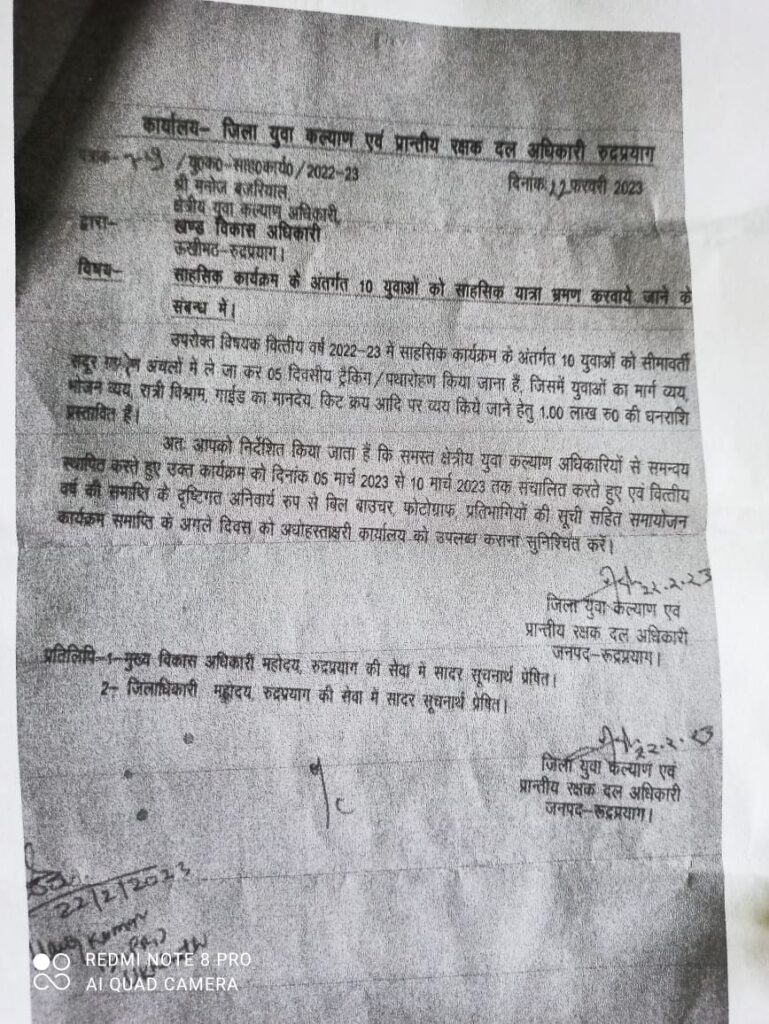 कार्यालय- जिला युवा कल्याण एवं प्रान्तीय रक्षक दल अधिकारी रुद्रप्रयाग
/यु0क0-सा0कार्य0/2022-23
दिनांक 22 फरवरी 2023
श्री मनोज बजरियाल,
क्षेत्रीय युवा कल्याण अधिकारी,
द्वारा- खण्ड विकास अधिकारी
ऊखीमठ-रुद्रप्रयाग।
विषय- साहसिक कार्यक्रम के अंतर्गत 10 युवाओं को साहसिक यात्रा भ्रमण करवाये जाने के
संबन्ध में।
उपरोक्त विषयक वित्तीय वर्ष 2022-23 में साहसिक कार्यक्रम के अंतर्गत 10 युवाओं को सीमावर्ती
अंचलों में ले जा कर 05 दिवसीय ट्रैकिंग/पथारोहण किया जाना हैं, जिसमें युवाओं का मार्ग व्यय,
भोजन व्यय, रात्री विश्राम, गाईड का मानदेय, किट क्रय आदि पर व्यय किये जाने हेतु 1.00 लाख रु0 की धनराशि
प्रस्तावित हैं।
अतः आपको निर्देशित किया जाता हैं कि समस्त क्षेत्रीय युवा कल्याण अधिकारियों से समन्वय
स्थापित करते हुए उक्त कार्यक्रम को दिनांक 05 मार्च 2023 से 10 मार्च 2023 तक संचालित करते हुए एवं वित्तीय
वर्ष की समाप्ति के दृष्टिगत अनिवार्य रुप से बिल बाउचर, फोटोग्राफ, प्रतिभागियों की सूची सहित समायोजन
कार्यक्रम समाप्ति के अगले दिवस को अधोहस्ताक्षरी कार्यालय को उपलब्ध कराना सुनिश्चित करें।
22.2.23
जिला युवा कल्याण एवं
प्रान्तीय रक्षक दल अधिकारी
जनपद-रुद्रप्रयाग।
प्रतिलिपि-1-मुख्य विकास अधिकारी महोदय, रुद्रप्रयाग की सेवा में सादर सूचनार्थ प्रेषित।
2- जिलाधिकारी महोदय, रुद्रप्रयाग की सेवा में सादर सूचनार्थ प्रेषित।
22.2.23
जिला युवा कल्याण एवं
प्रान्तीय रक्षक दल अधिकारी
जनपद-रुद्रप्रयाग।
22/2/2023
Kumar
REDMI NOTE 8 PRO
AI QUAD CAMERA